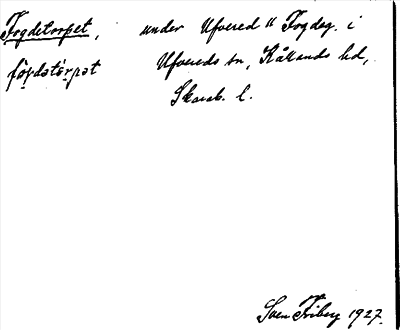 Fogdetorpet, under Ufvered u Fogdeg. i
fo̤gdetŏrpet Ufvereds sn, Kållands hd,
Skarab. l.
Sven Friberg 1927.